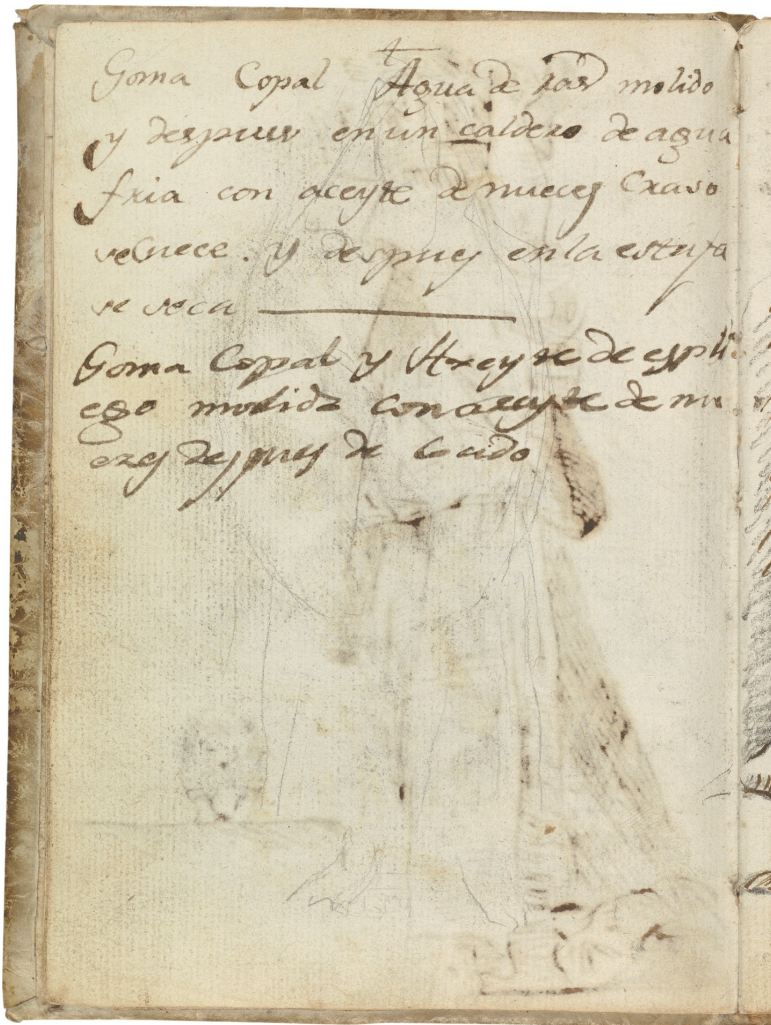 Goma Copal Agua de ras molido
y despues en un caldero de agua
fria con aceyte de nueces Craso
se Cuece. y despues en la estufa
se seca
Goma Copal y Axeyte de espli
ego molido con aceyte de nu
ezes despues de Cocido